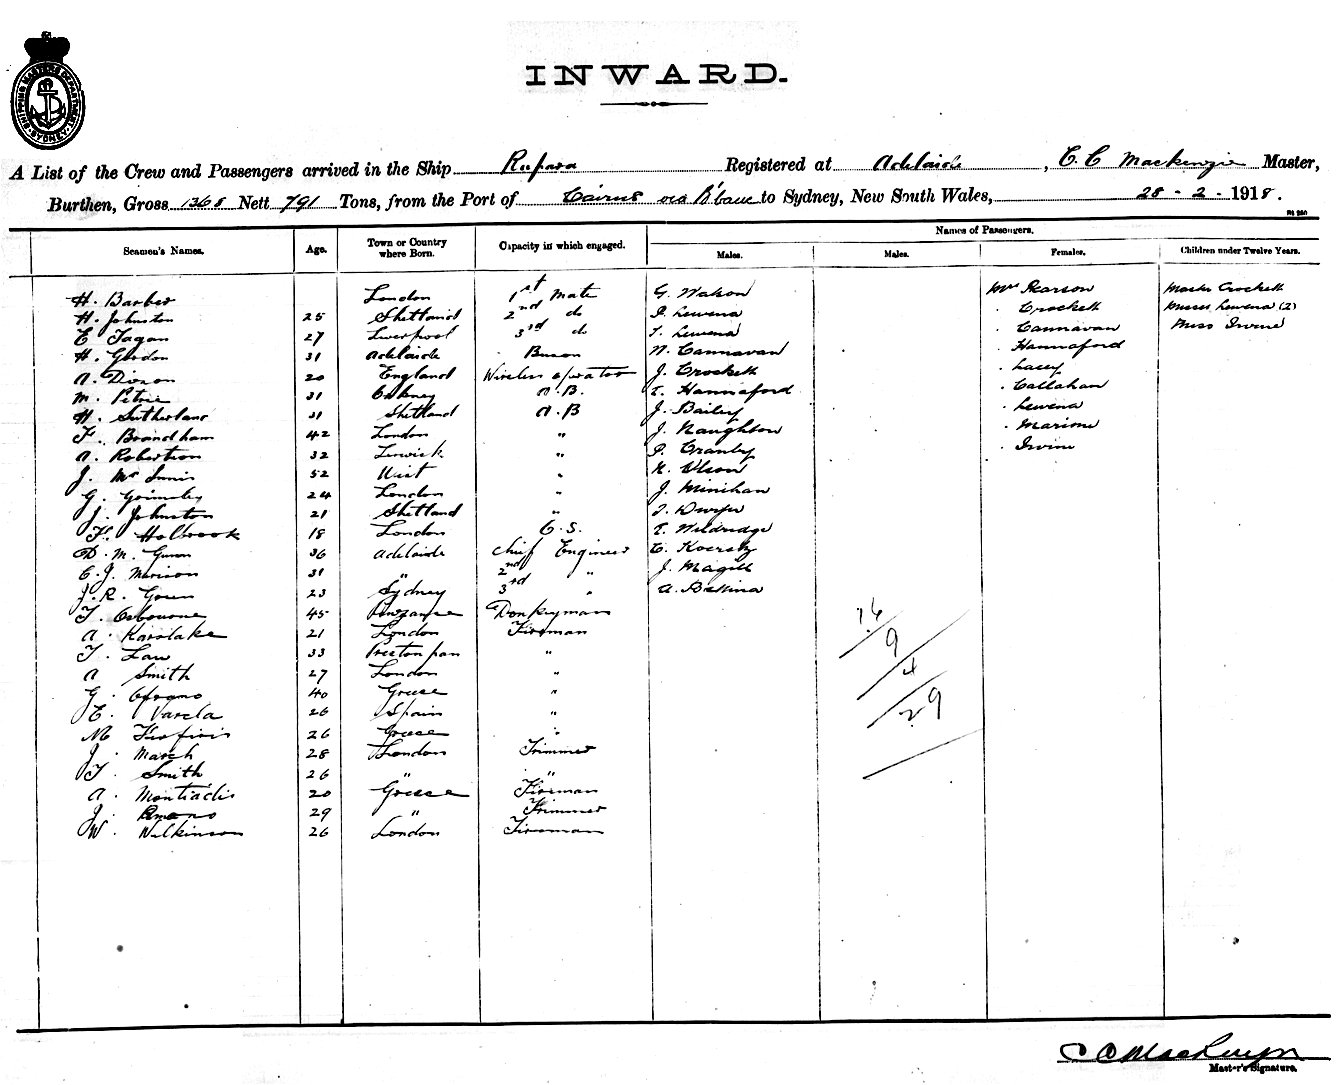 SHIPPING MASTERS DEPARTMENT SYDNEY
INWARD.
A List of the Crew and Passengers arrived in the Ship Rupara Registered at Adelaide, C. C Mackenzie Master,
Burthen, Gross 1368 Nett 791 Tons, from the Port of Cairns via B'bane to Sydney, New South Wales, 28 - 2 - 1918.
Names of Passengers.
Seamen's Names. Age. Town or Country where Born. Capacity in which engaged. Males. Males. Females. Children under Twelve Years.
H. Barber London 1st Mate G. Watson Mrs Pearson Master Crockett
H. Johnston 25 Shetland 2nd do P. Lewena " Crockett Misses Lewena (2)
E Fagan 27 Liverpool 3rd do T. Lewena " Cannavan Miss Irvine
H. Gordon 31 Adelaide Bosun N. Cannavan " Hannaford
A. Dixon 20 England Wireless operator J. Crockett " Lacey
M. Petrie 31 Orkney A.B. E. Hannaford " Callahan
H. Sutherland 31 Shetland A.B J. Bailey " Lewena
F. Brandham 42 London " J. Naughton " Marion
A. Robertson 32 Lerwick " P. Cranby " Irvine
J. Mc Innis 52 Uist " N. Olson
G. Grimsley 24 London " J. Minihan
J. Johnston 21 Shetland " J. Dwyer
H. Holbrook 18 London O.S. E. Weldridge
D. M. Gunn 36 Adelaide Chief Engineer C.
C. J. Morrison 31 " 2nd " J. Magill
J. R. Green 23 Sydney 3rd " A.
T. Osbourne 45 Penzance Donkeyman
A. Karslake 21 London Fireman
T. Law 33 Prestonpan "
A Smith 27 London "
G. 40 Greece "
E. Varela 26 Spain "
M 26 Greece "
J. March 28 London Trimmer
T. Smith 26 " "
A. Montiadis 20 Greece Fireman
J. 29 " Trimmer
W. Wilkinson 26 London Fireman
16
9
4
29
C C Mackenzie
Master's Signature.